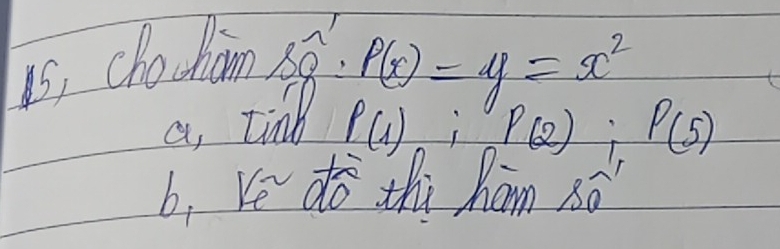 15, Cho hàm số : P(x) = y = x²
a, Tính P(1) ; P(2) ; P(5)
b, Vẽ đồ thị hàm số